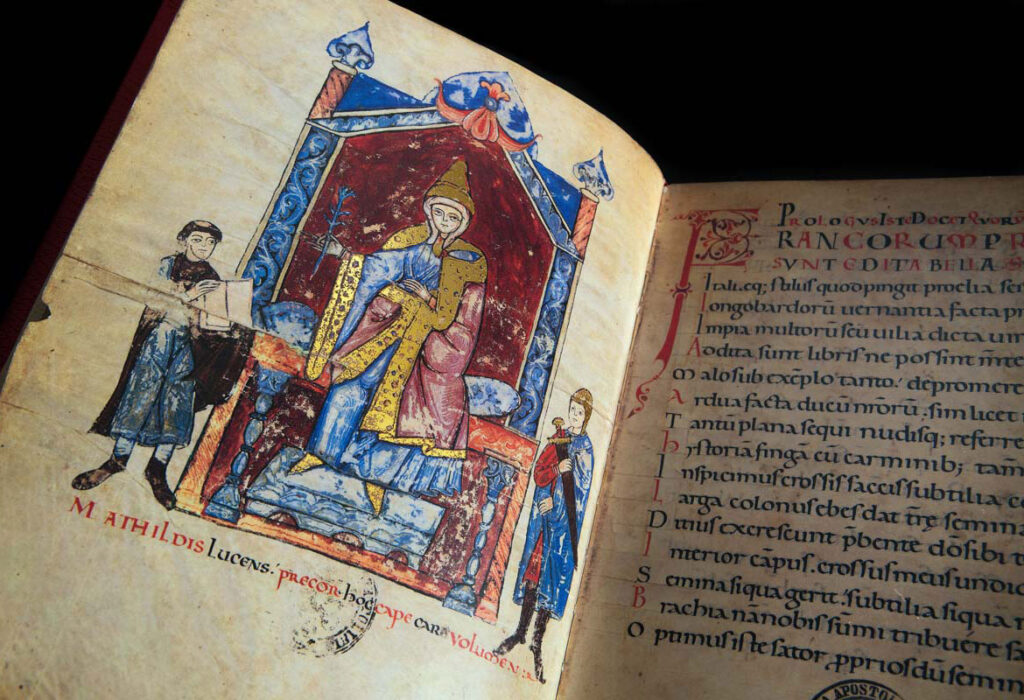 MATHILDIS LUCENS. precor hoc cape cara volumen
PROLOGUS ISTE DOCET QUORU
FRANCORUM PR
SUNT EDITA BELLA S
Itali.eq; stilus quod pingit proelia
Longobardorū vernantia facta
Impia multorū seu vilia dicta
Aodita sunt libris ne possint
Malo sub exēplo tanto. depromere
Ardua facta ducū mōrū. sim licet
Tantū plana sequi nudisq; referre
hystoriā fingā cū carminib; tam
Inspicimus crossis saccis subtilia
Larga colonus ebes dat tr̄e semina
Ditius excrescunt p̄bente dōsibi
Interior cāpus. crossus meus undiq
Semina siqua gerit. subtilia siqua
Brachia nānobis sumi tribuere
Optimus iste sator. ꝓprios dū semin
APOSTOL